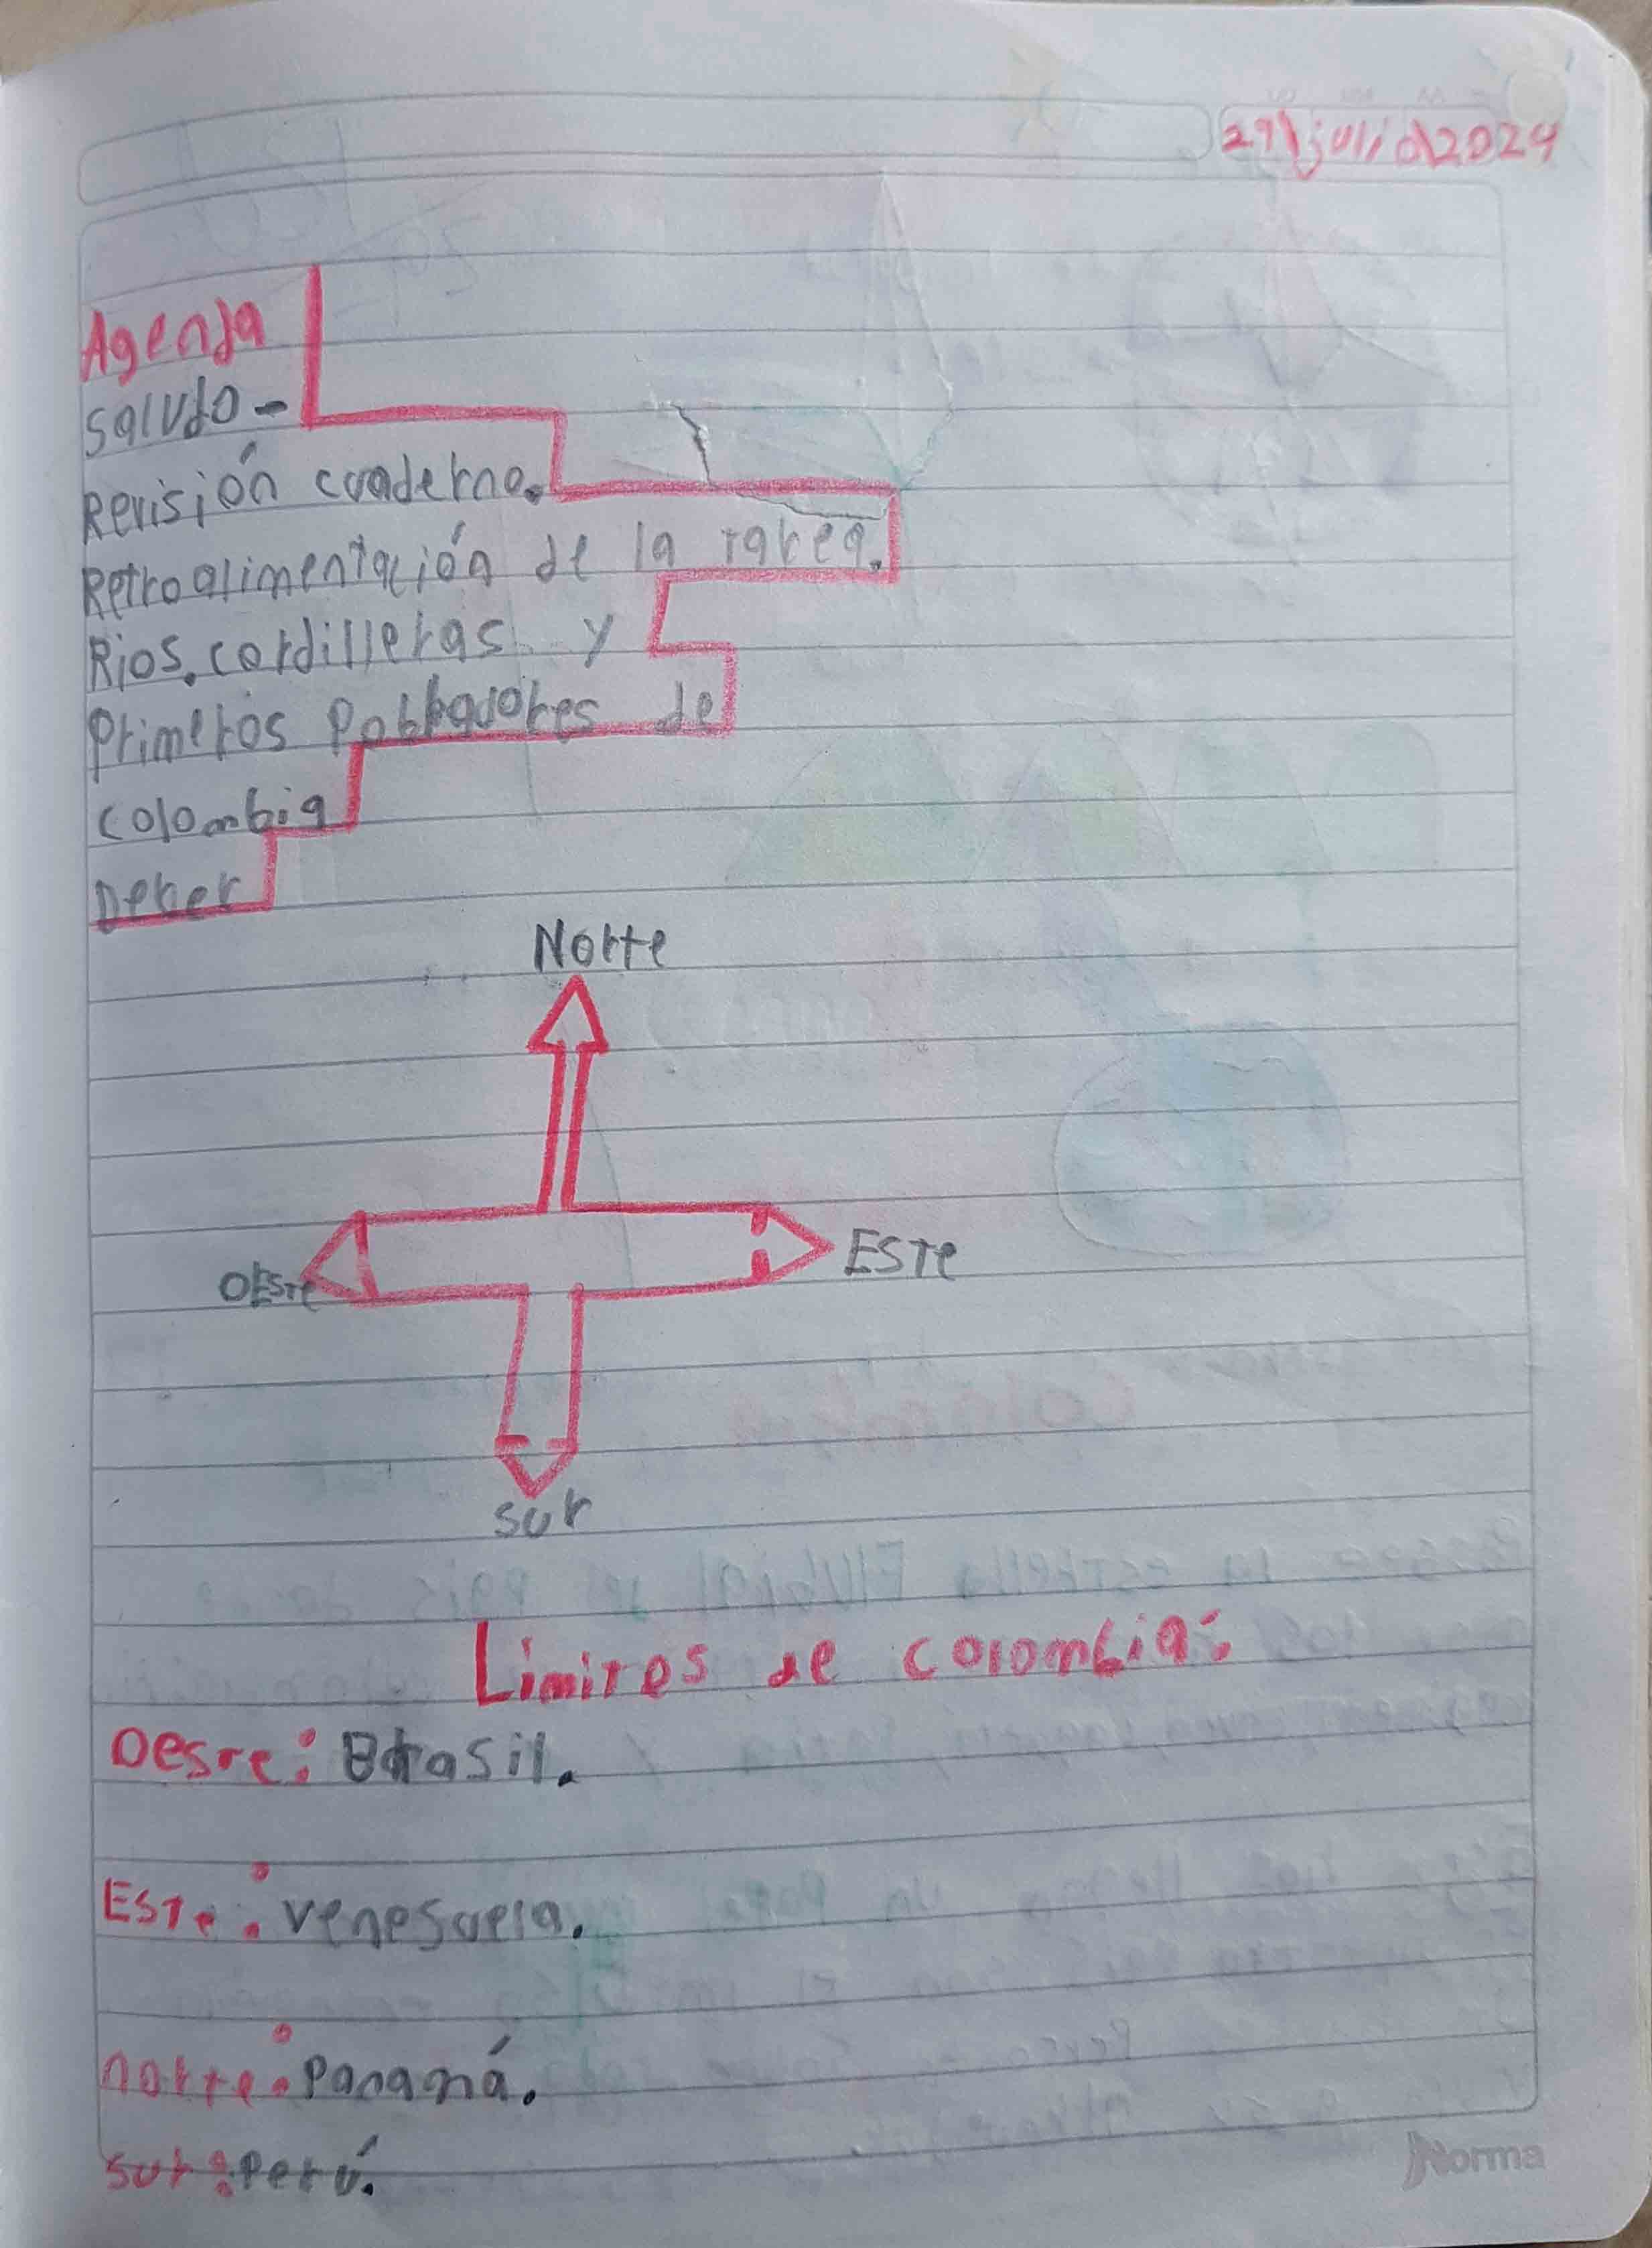 29\julio\2024
Agenda
Saludo-
Revisión cuaderno.
Retroalimentación de la tarea.
Rios. cordilleras y
Primeros Pobladores de
colombia
Deber
Norte
Oeste
Este
Sur
Limites de colombia:
Oeste: Brasil.
Este: venesuela.
norte: Panamá.
sur: Perú.
Norma